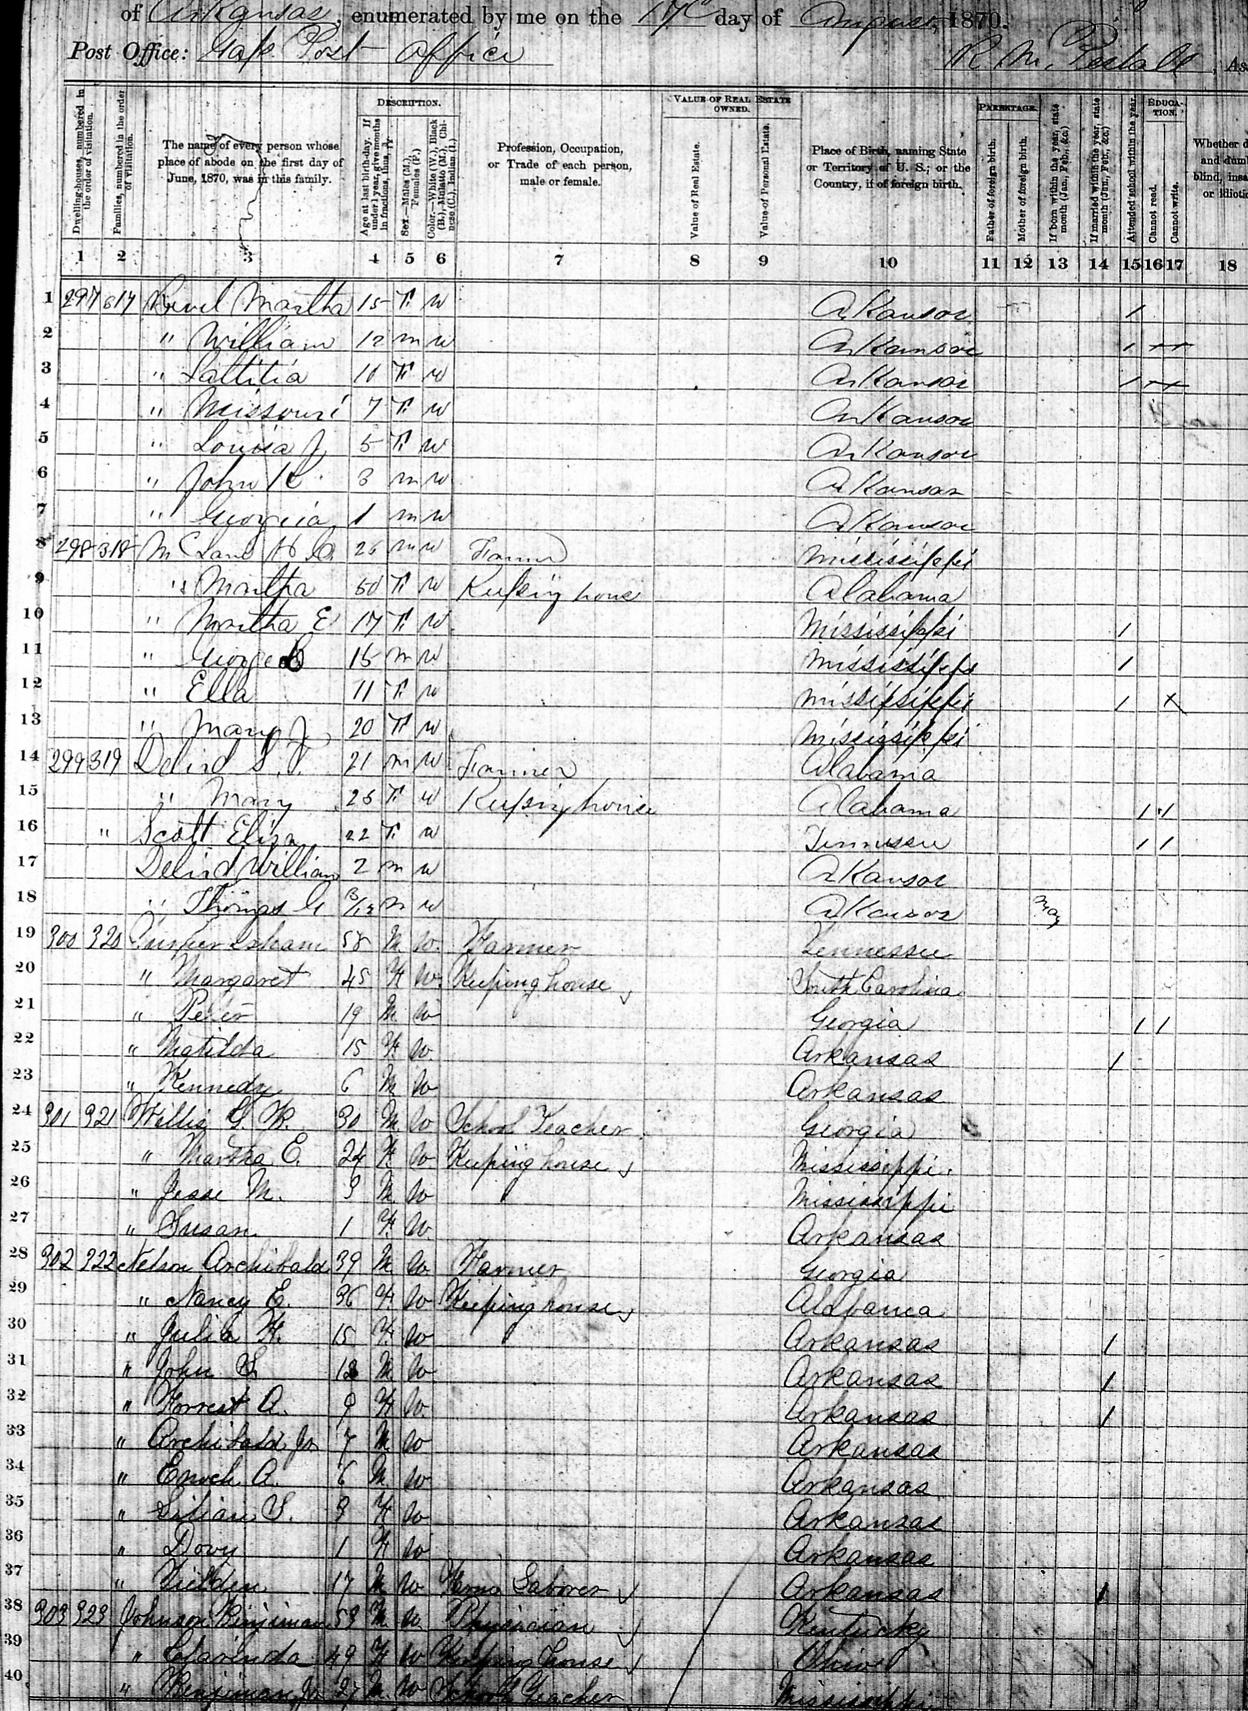 of Arkansas, enumerated by me on the 17 day of August, 1870.
Post Office: Post office R. M.
DESCRIPTION. VALUE OF REAL ESTATE OWNED. PARENTAGE. EDUCATION.
Dwelling-houses, numbered in the order of visitation.
Families, numbered in the order of visitation.
The name of every person whose place of abode on the first day of June, 1870, was in this family.
Age at last birth-day. If under 1 year, give months in fractions, thus,
Sex.—Males (M.), Females (F.)
Color.—White (W.), Black (B.), Mulatto (M.), Chinese (C.), Indian (I.)
Profession, Occupation, or Trade of each person, male or female.
Value of Real Estate.
Value of Personal Estate.
Place of Birth, naming State or Territory of U. S.; or the Country, if of foreign birth.
Father of foreign birth.
Mother of foreign birth.
If born within the year, state month (Jan., Feb., &c.)
If married within the year, state month (Jan., Feb., &c.)
Attended school within the year.
Cannot read.
Cannot write.
Whether d and dumb blind, insa or idiotic
1 2 3 4 5 6 7 8 9 10 11 12 13 14 15 16 17 18
1 297 317 Martha 15 F W Arkansas /
2 " William 12 m w Arkansas /
3 " Lattitia 10 F w Arkansas /
4 " Missouri 7 F w Arkansas
5 " Louisa J 5 F w Arkansas
6 " John R 3 m w Arkansas
7 " Georgia 1 m w Arkansas
8 298 318 26 m w Farmer Mississippi
9 " Martha 50 F w Keeping house Alabama
10 " Martha E 17 F w Mississippi /
11 " George 15 m w Mississippi /
12 " Ella 11 F w Mississippi / X
13 " Mary J 20 F w Mississippi
14 299 319 21 m w Farmer Alabama
15 " Mary 26 F w Keeping house Alabama / /
16 " Scott Eliza 22 F w Tennessee / /
17 William 2 m w Arkansas
18 " Thomas G m w Arkansas May
19 300 320 58 M W Farmer Tennessee
20 " Margaret 45 F W Keeping house South Carolina
21 " Peter 19 M W Georgia / /
22 " Matilda 15 F W Arkansas /
23 " Kennedy 6 M W Arkansas
24 301 321 Willis G. W. 30 M W School Teacher Georgia
25 " Martha E. 24 F W Keeping house Mississippi
26 " Jesse M. 3 M W Mississippi
27 " Susan 1 F W Arkansas
28 302 322 Nelson Archibald 39 M W Farmer Georgia
29 " Nancy E. 36 F W Keeping house Alabama
30 " Julia F. 15 F W Arkansas /
31 " John S. M W Arkansas /
32 " Forrest A. 9 F W Arkansas /
33 " Archibald Jr 7 M W Arkansas
34 " Enoch A. 6 M W Arkansas
35 " Lilian S. 3 F W Arkansas
36 " Dovy 1 F W Arkansas
37 " 17 M W Farm Laborer Arkansas /
38 303 323 Johnson Binjiman 53 M W Physician Kentucky
39 " Clarinda 49 F W Keeping house Ohio
40 " Binjiman Jr 27 M W School Teacher Mississippi